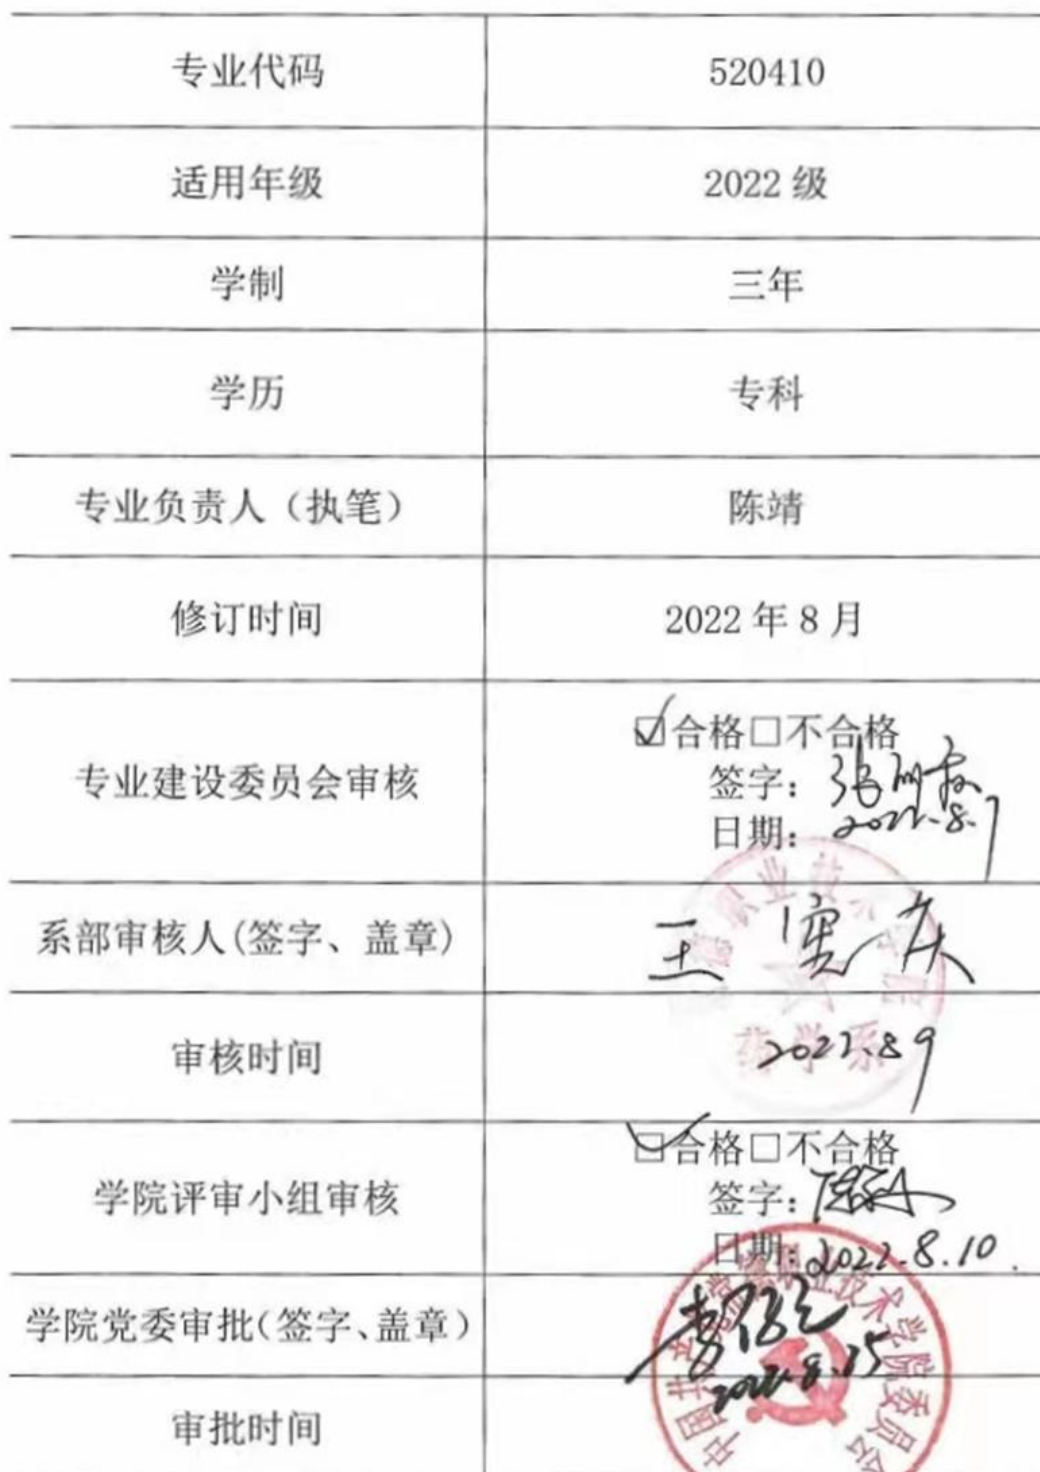 专业代码 520410
适用年级 2022 级
学制 三年
学历 专科
专业负责人（执笔） 陈靖
修订时间 2022 年 8 月
☑合格□不合格
专业建设委员会审核 签字：
日期： 2022.8.7
系部审核人(签字、盖章)
药学系
审核时间 2022.8.9
☑合格□不合格
学院评审小组审核 签字：
日期：2022.8.10.
学院党委审批(签字、盖章)
2022.8.15
审批时间